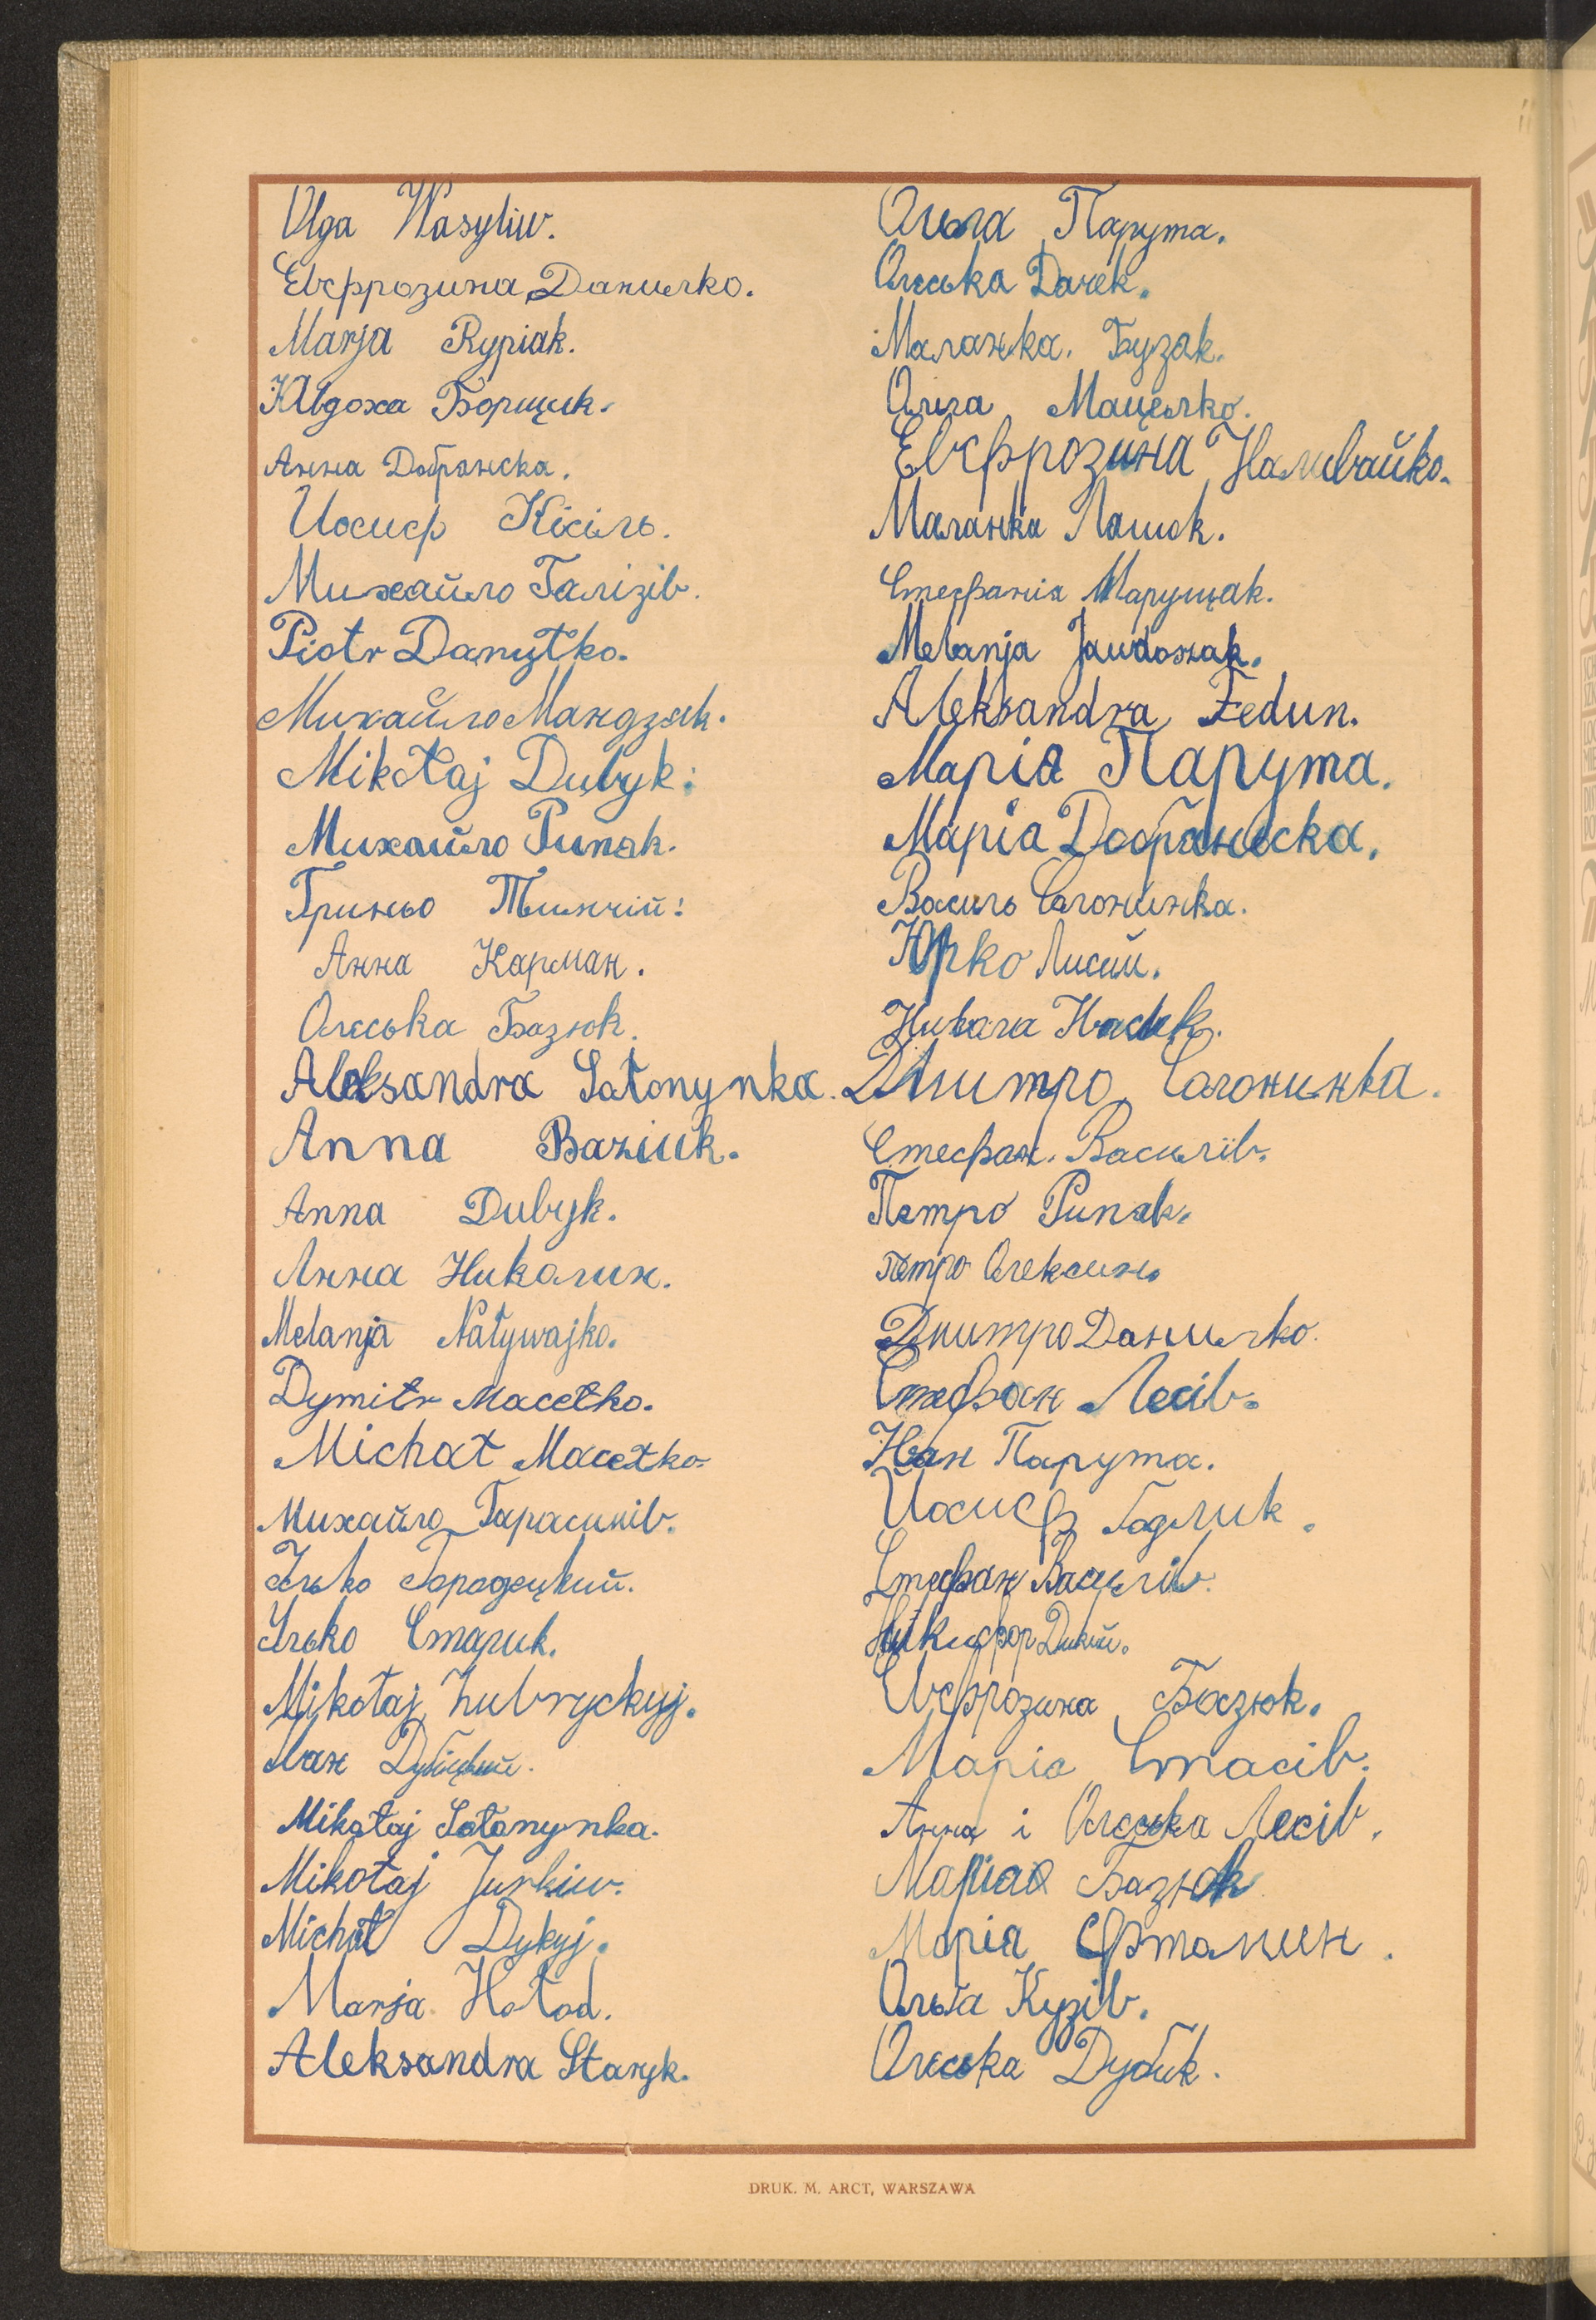 Olga Wasyliw.
Евфрозина Данилко.
Marja Rypiak.
Явдоха Борщик.
Анна Добрянска.
Иосиф Кісіль.
Михайло Галізів.
Piotr Danyłko.
Михайло Мандзяк.
Mikołaj Dubyk.
Михайло Рипяк.
Гриньо Тимчій.
Анна Карман.
Олеська Базюк.
Aleksandra Sołonynka.
Anna Baziuk.
Anna Dubyk.
Анна Николин.
Melanja Naływajko.
Dymitr Macełko.
Michał Macełko.
Михайло Гарасимів.
Ілько Городецкий.
Ілько Старик.
Mikołaj Zubryckyj.
Іван
Mikołaj Sołonynka.
Mikołaj Jurkiw.
Michał Dykyj.
Marja Hołod.
Aleksandra Staryk.
Ольга Парута.
Олеська Дачек.
Маланка. Бузяк.
Олга Мацелко.
Евфрозина Наливайко.
Маланка Лашок.
Стефанія Марущак.
Melanja Jawdoszak.
Aleksandra Fedun.
Марія Парута.
Маріа Добраньска.
Василь Солонинка.
Юрко Лисий.
Дмитро Солонинка.
Стефан. Василів.
Петро Рипяк.
Петро Олексин.
Дмитро Данилко.
Стефан Лесів.
Іван Парута.
Иосиф Годлик.
Стефан Василів.
Никифор Дикий.
Евфрозина Базюк.
Маріа Стасів.
Анна і Олеська Лесів.
Маріа Базюк
Марія Фтомин.
Ольга Кузів.
Олеська Дубик.
DRUK. M. ARCT, WARSZAWA